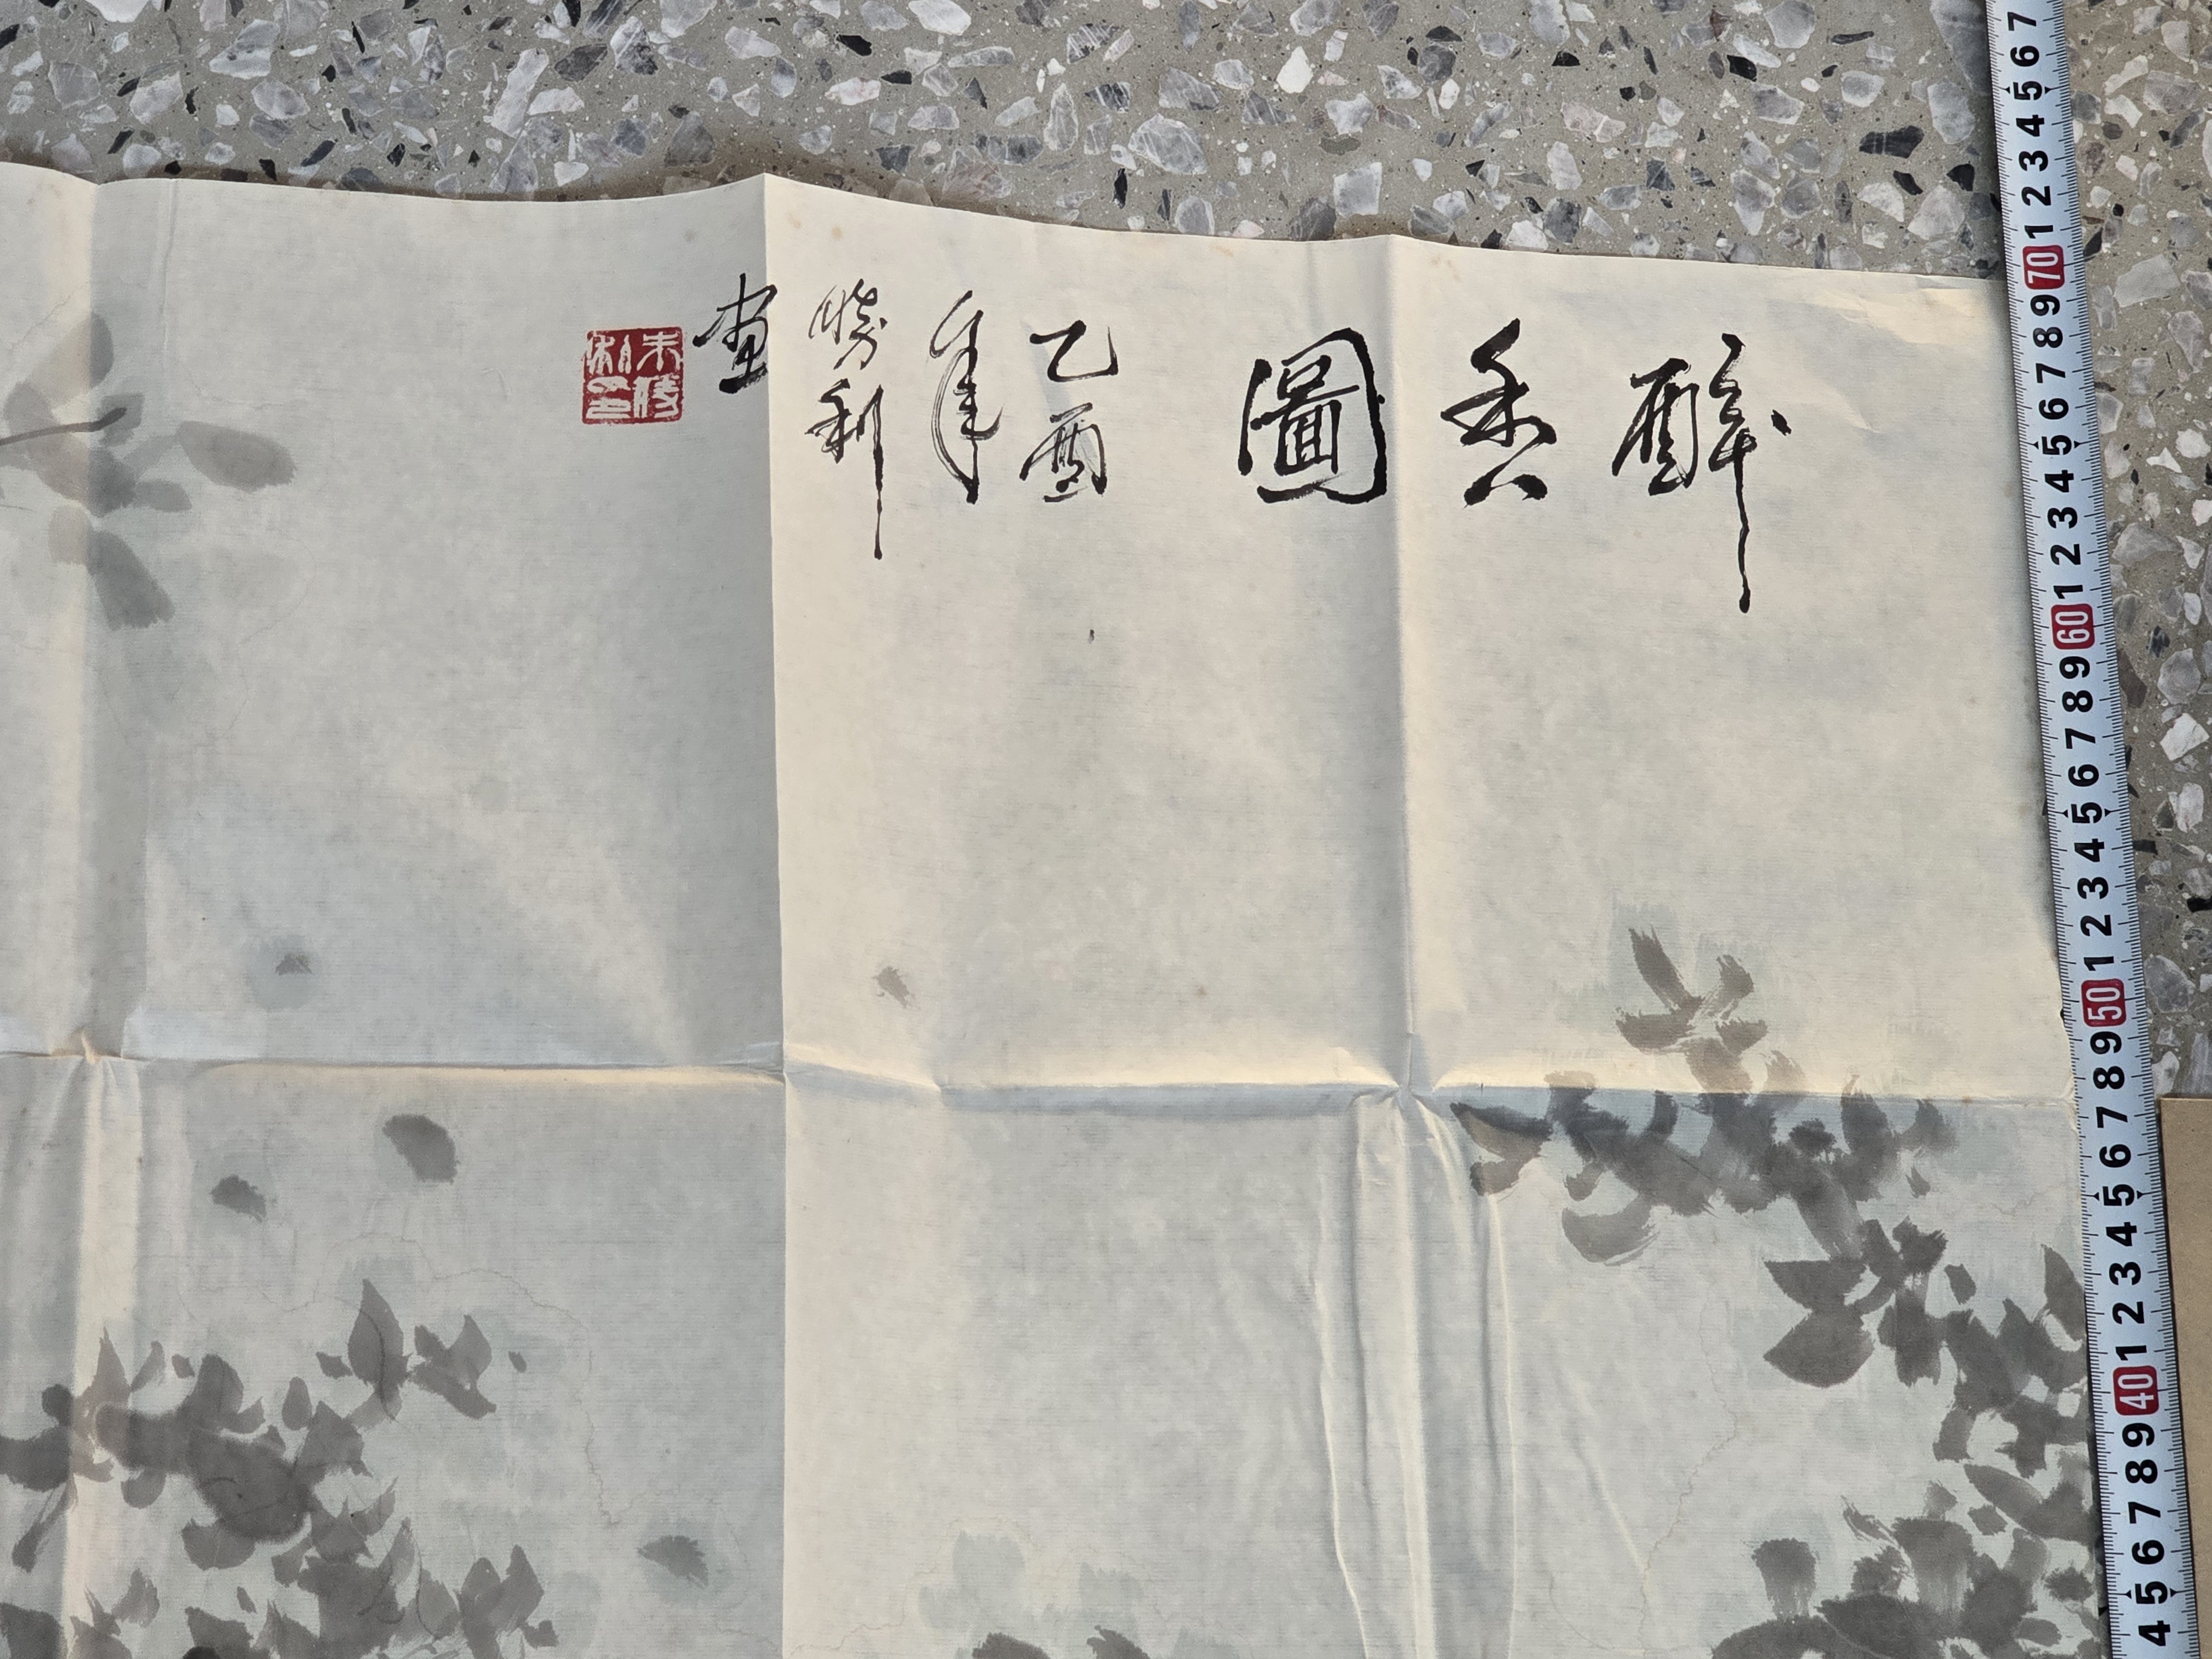 醉香圖
乙酉年
勝利
畫
朱勝利印
4 5 6 7 8 9 40 1 2 3 4 5 6 7 8 9 50 1 2 3 4 5 6 7 8 9 60 1 2 3 4 5 6 7 8 9 70 1 2 3 4 5 6 7